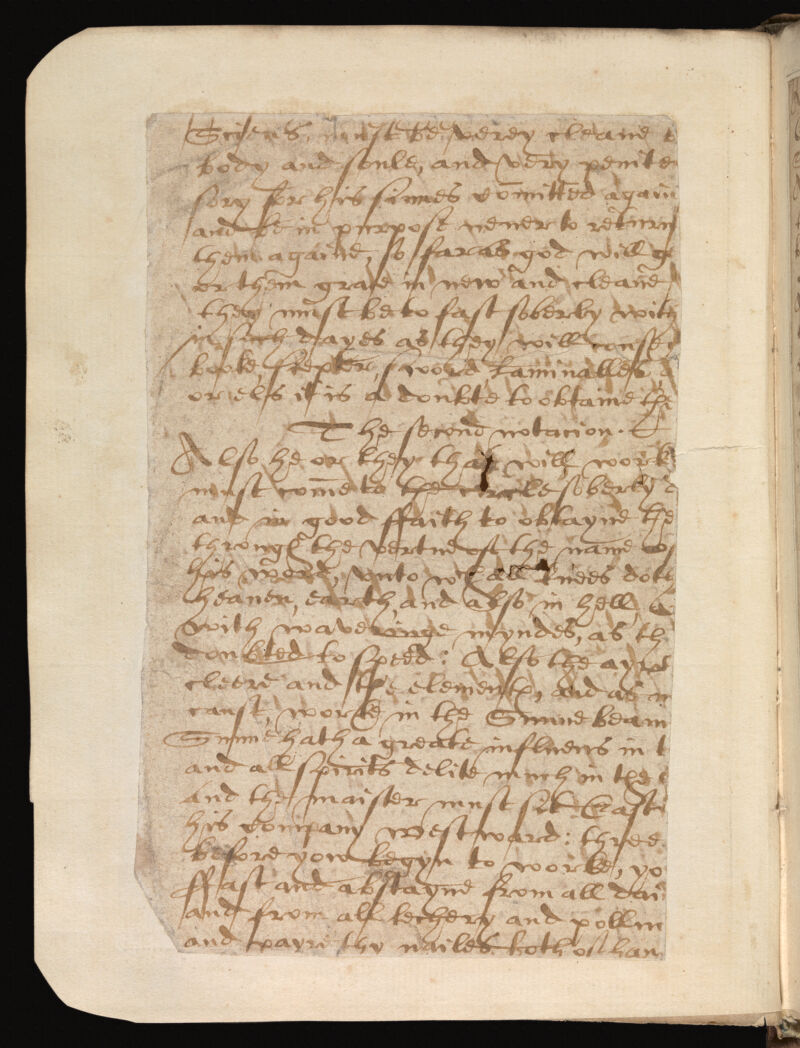 Sciens, must be verey cleane
body and soule, and very penite
sory for his sinnes comitted again
and be in purpose never to return
them againe, so far as god will g
or them grace in new and cleane
they must be to fast soberly with
in such dayes as they will conse
booke, scepter, sword Laminalles
or els it is a doubte to obtaine the
The second notacion.
Also he or they that will work
must come to the circle soberly
and in good ffaith to obtayne the
through the vertue of the name of
his word, unto wch all knees doth
heaven, earth, and also in hell,
with waveringe myndes, as th
doubted to speed: Also the ayre
cleere and the elements, and as
canst, worke in the Sunne beam
Sunne hath a greate influens in t
and all spirits delite much in the
And the maister must sit East
his company westward: three
before yow begyn to worke, yo
ffast and abstayne from all
and from all lechery and pollu
and payre thy nailes both of han